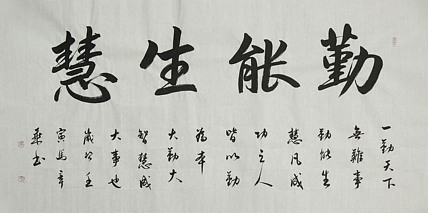 勤能生慧
一勤天下
無難事
勤能生
慧凡成
功之人
皆以勤
為本
大勤大
智慧成
大事也
歲次壬
寅馬
书